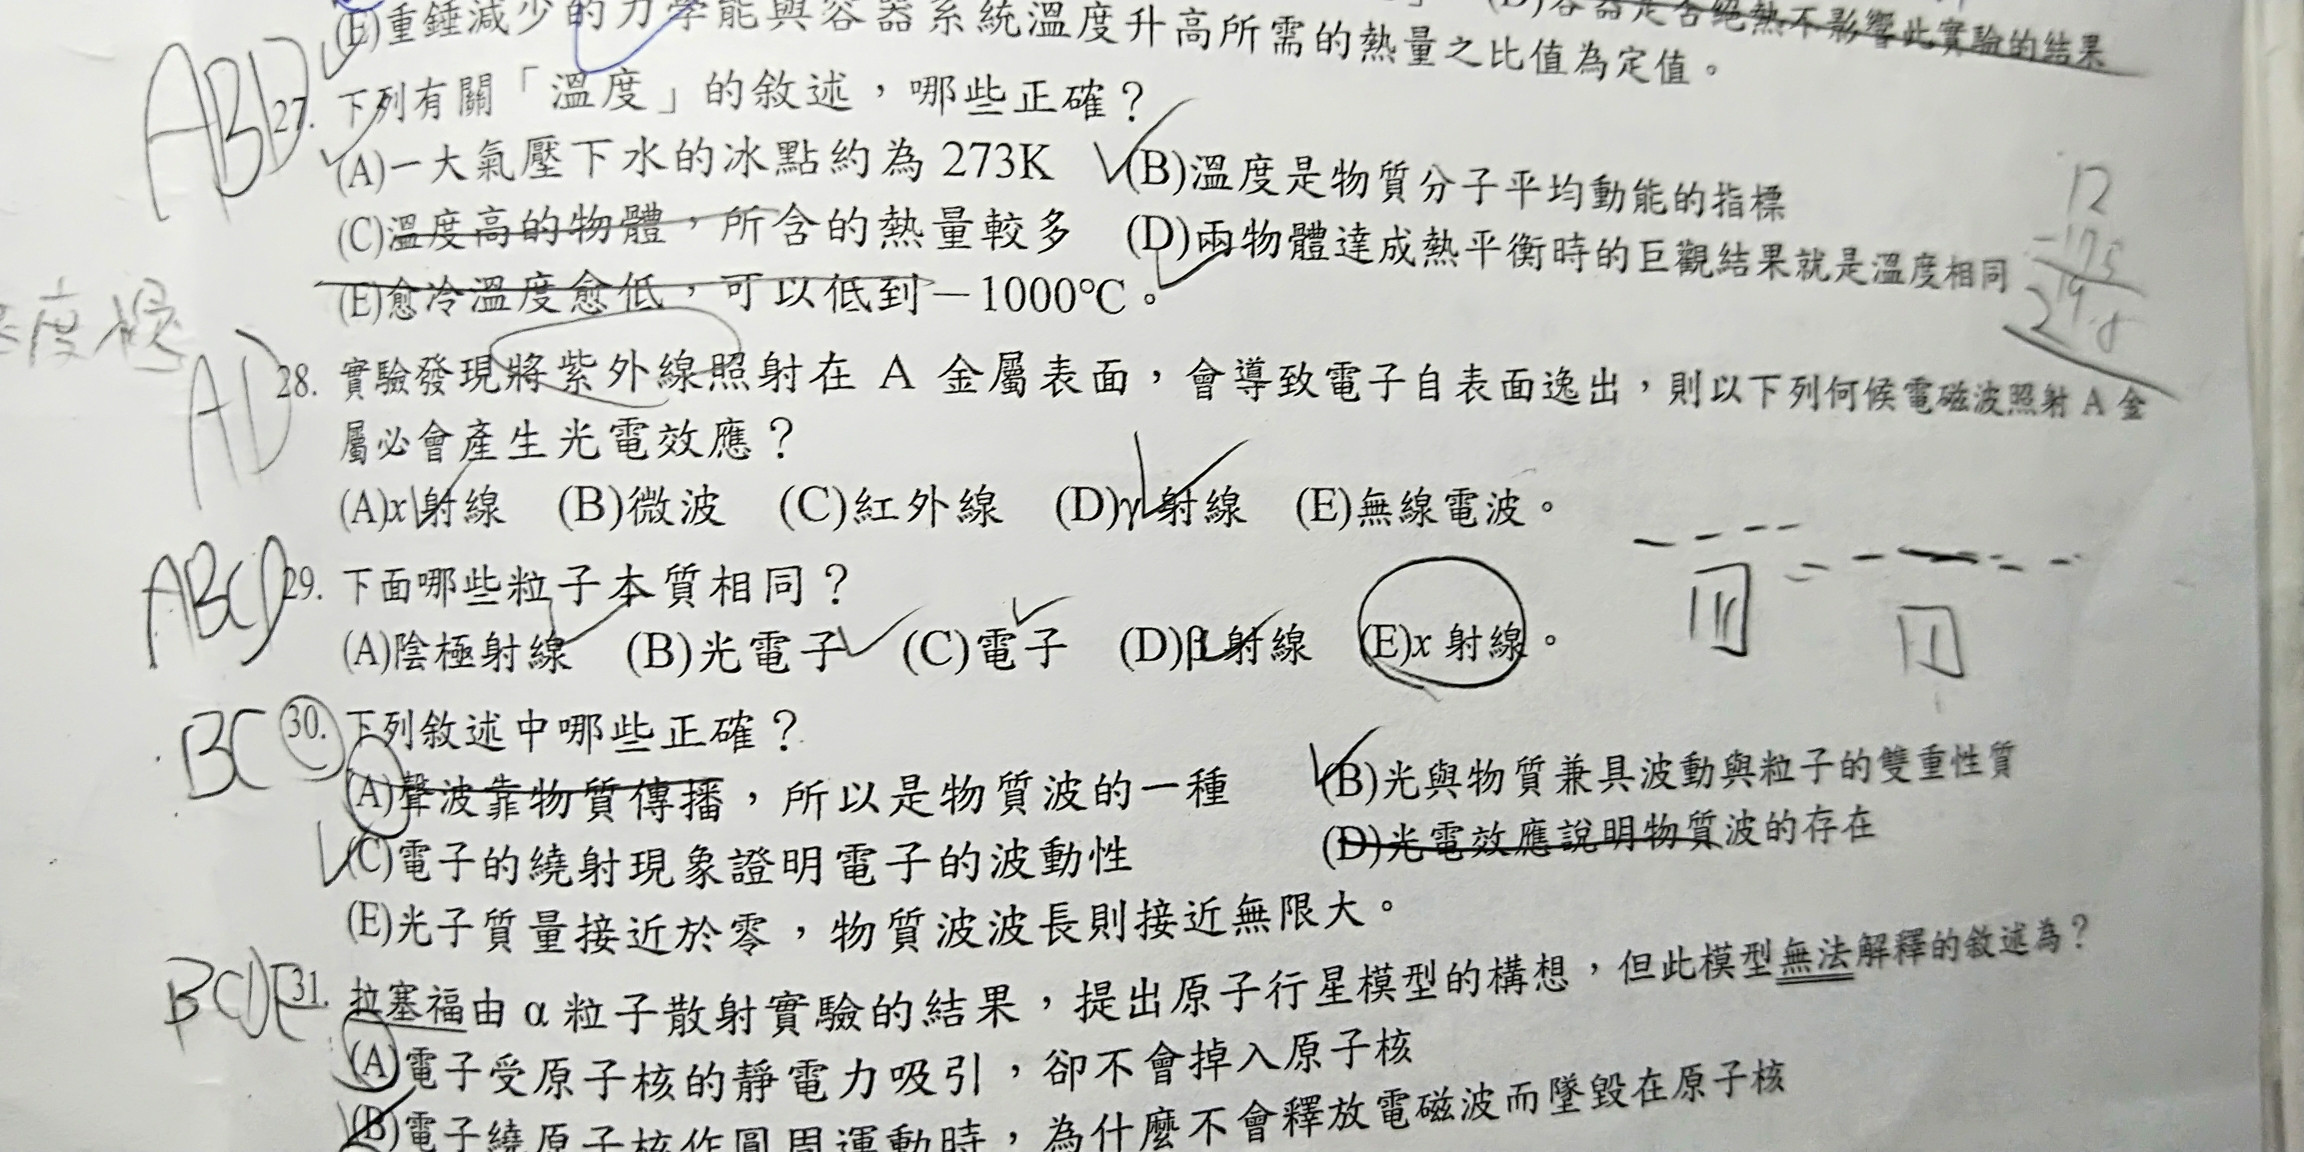 (E)重錘減少的力學能與容器系統溫度升高所需的熱量之比值為定值。
(D)容器是否絕熱不影響此實驗的結果
ABD
27. 下列有關「溫度」的敘述，哪些正確？
(A)一大氣壓下水的冰點約為 273K (B)溫度是物質分子平均動能的指標
(C)溫度高的物體，所含的熱量較多 (D)兩物體達成熱平衡時的巨觀結果就是溫度相同
(E)愈冷溫度愈低，可以低到－1000℃。
12
AD
28. 實驗發現將紫外線照射在 A 金屬表面，會導致電子自表面逸出，則以下列何候電磁波照射 A 金
屬必會產生光電效應？
(A)x 射線 (B)微波 (C)紅外線 (D)γ 射線 (E)無線電波。
ABCD
29. 下面哪些粒子本質相同？
(A)陰極射線 (B)光電子 (C)電子 (D)β 射線 (E)x 射線。
BC
30. 下列敘述中哪些正確？
(A)聲波靠物質傳播，所以是物質波的一種 (B)光與物質兼具波動與粒子的雙重性質
(C)電子的繞射現象證明電子的波動性 (D)光電效應說明物質波的存在
(E)光子質量接近於零，物質波波長則接近無限大。
BCDE
31. 拉塞福由 α 粒子散射實驗的結果，提出原子行星模型的構想，但此模型無法解釋的敘述為？
(A)電子受原子核的靜電力吸引，卻不會掉入原子核
(B)電子繞原子核作圓周運動時，為什麼不會釋放電磁波而墜毀在原子核